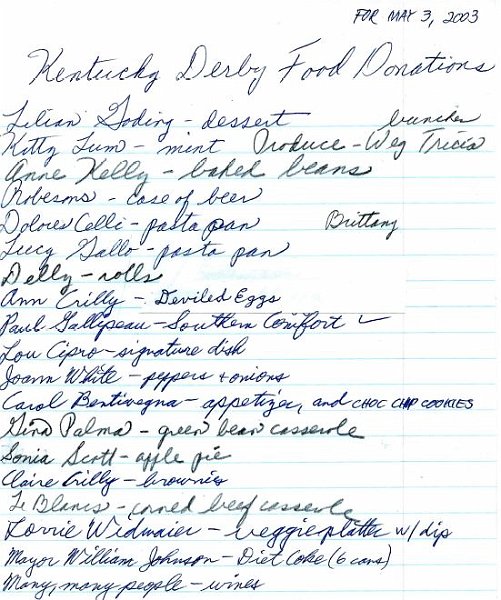 FOR MAY 3, 2003
Kentucky Derby Food Donations
Lilian Goding - dessert bunches
Kitty Lum - mint Produce - Weg Tricia
Anne Kelly - baked beans
Robesons - case of beer
Dolores Celli - pasta pan Brittany
Lucy Gallo - pasta pan
Delly - rolls
Ann Crilly - Deviled Eggs
Paul Gallipeau - Southern Comfort ✓
Lou Cipro - signature dish
Joann White - peppers + onions
Carol Bentivegna - appetizer, and CHOC CHIP COOKIES
Gina Palma - green bean casserole
Sonia Scott - apple pie
Claire Crilly - brownies
Le Blancs - corned beef casserole
Lorrie Widmaier - veggie platter w/ dip
Mayor William Johnson - Diet Coke (6 cans)
Many, many people - wines